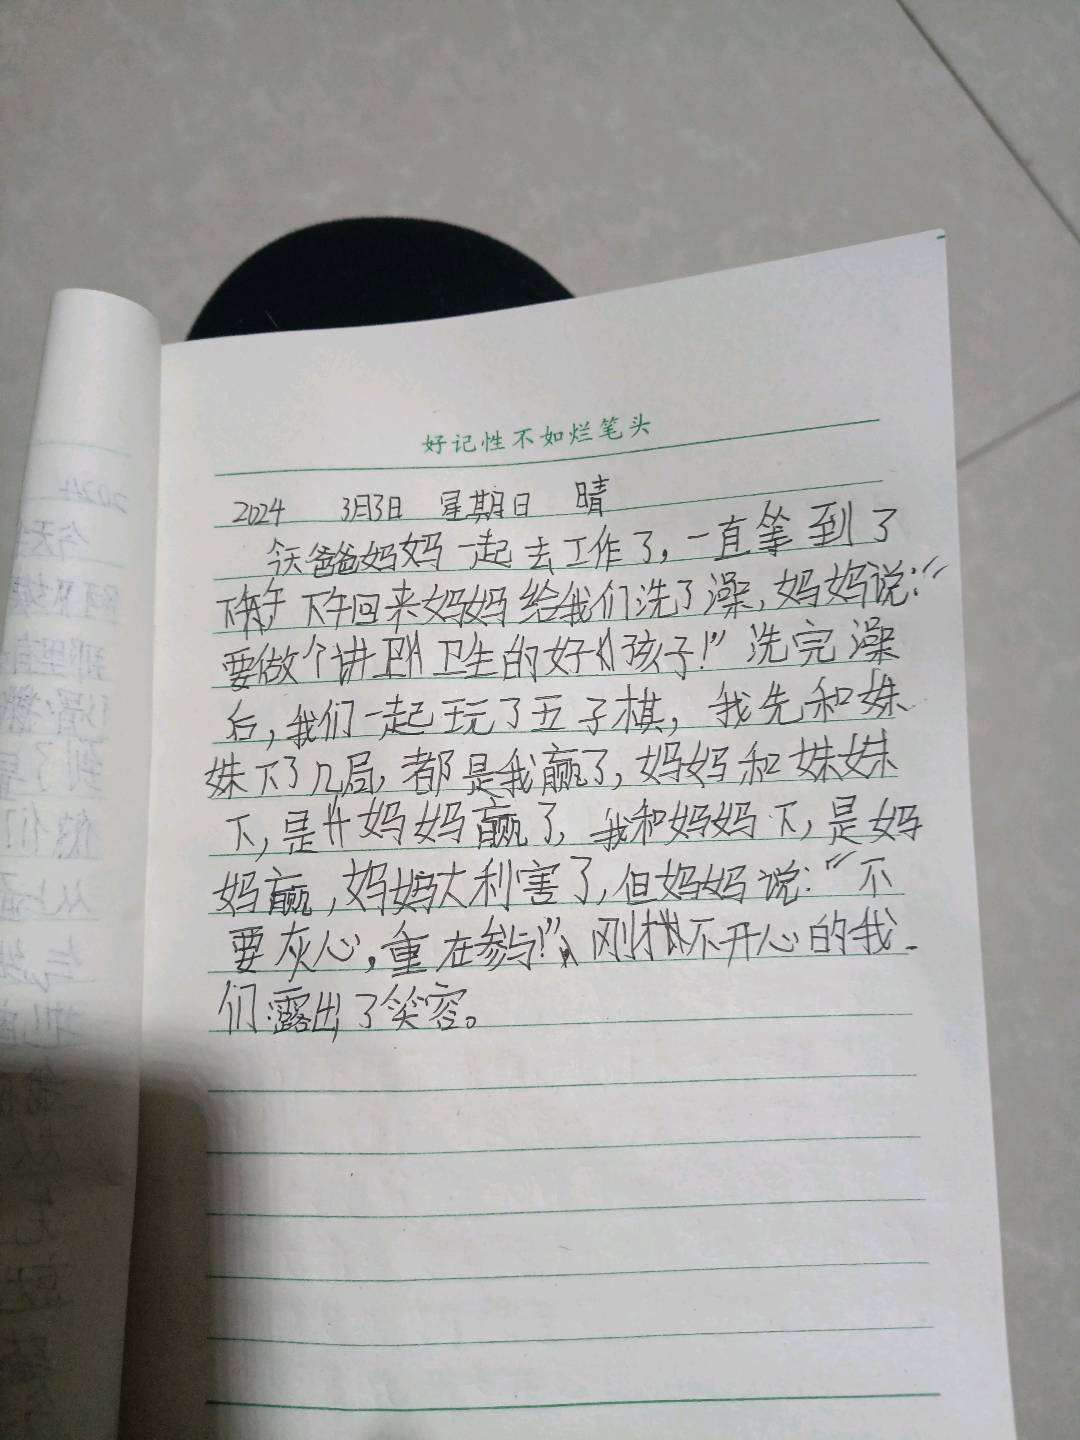 好记性不如烂笔头
2024 3月3日 星期日 晴
今天爸爸妈妈一起去工作了,一直等到了
下午回来妈妈给我们洗了澡,妈妈说:“
要做个讲卫生的好孩子!”洗完澡
后,我们一起玩了五子棋,我先和妹
妹下了几局,都是我赢了,妈妈和妹妹
下,是妈妈赢了,我和妈妈下,是妈
妈赢,妈妈太利害了,但妈妈说:“不
要灰心,重在参与!”刚才不开心的我
们露出了笑容。
2024
今天